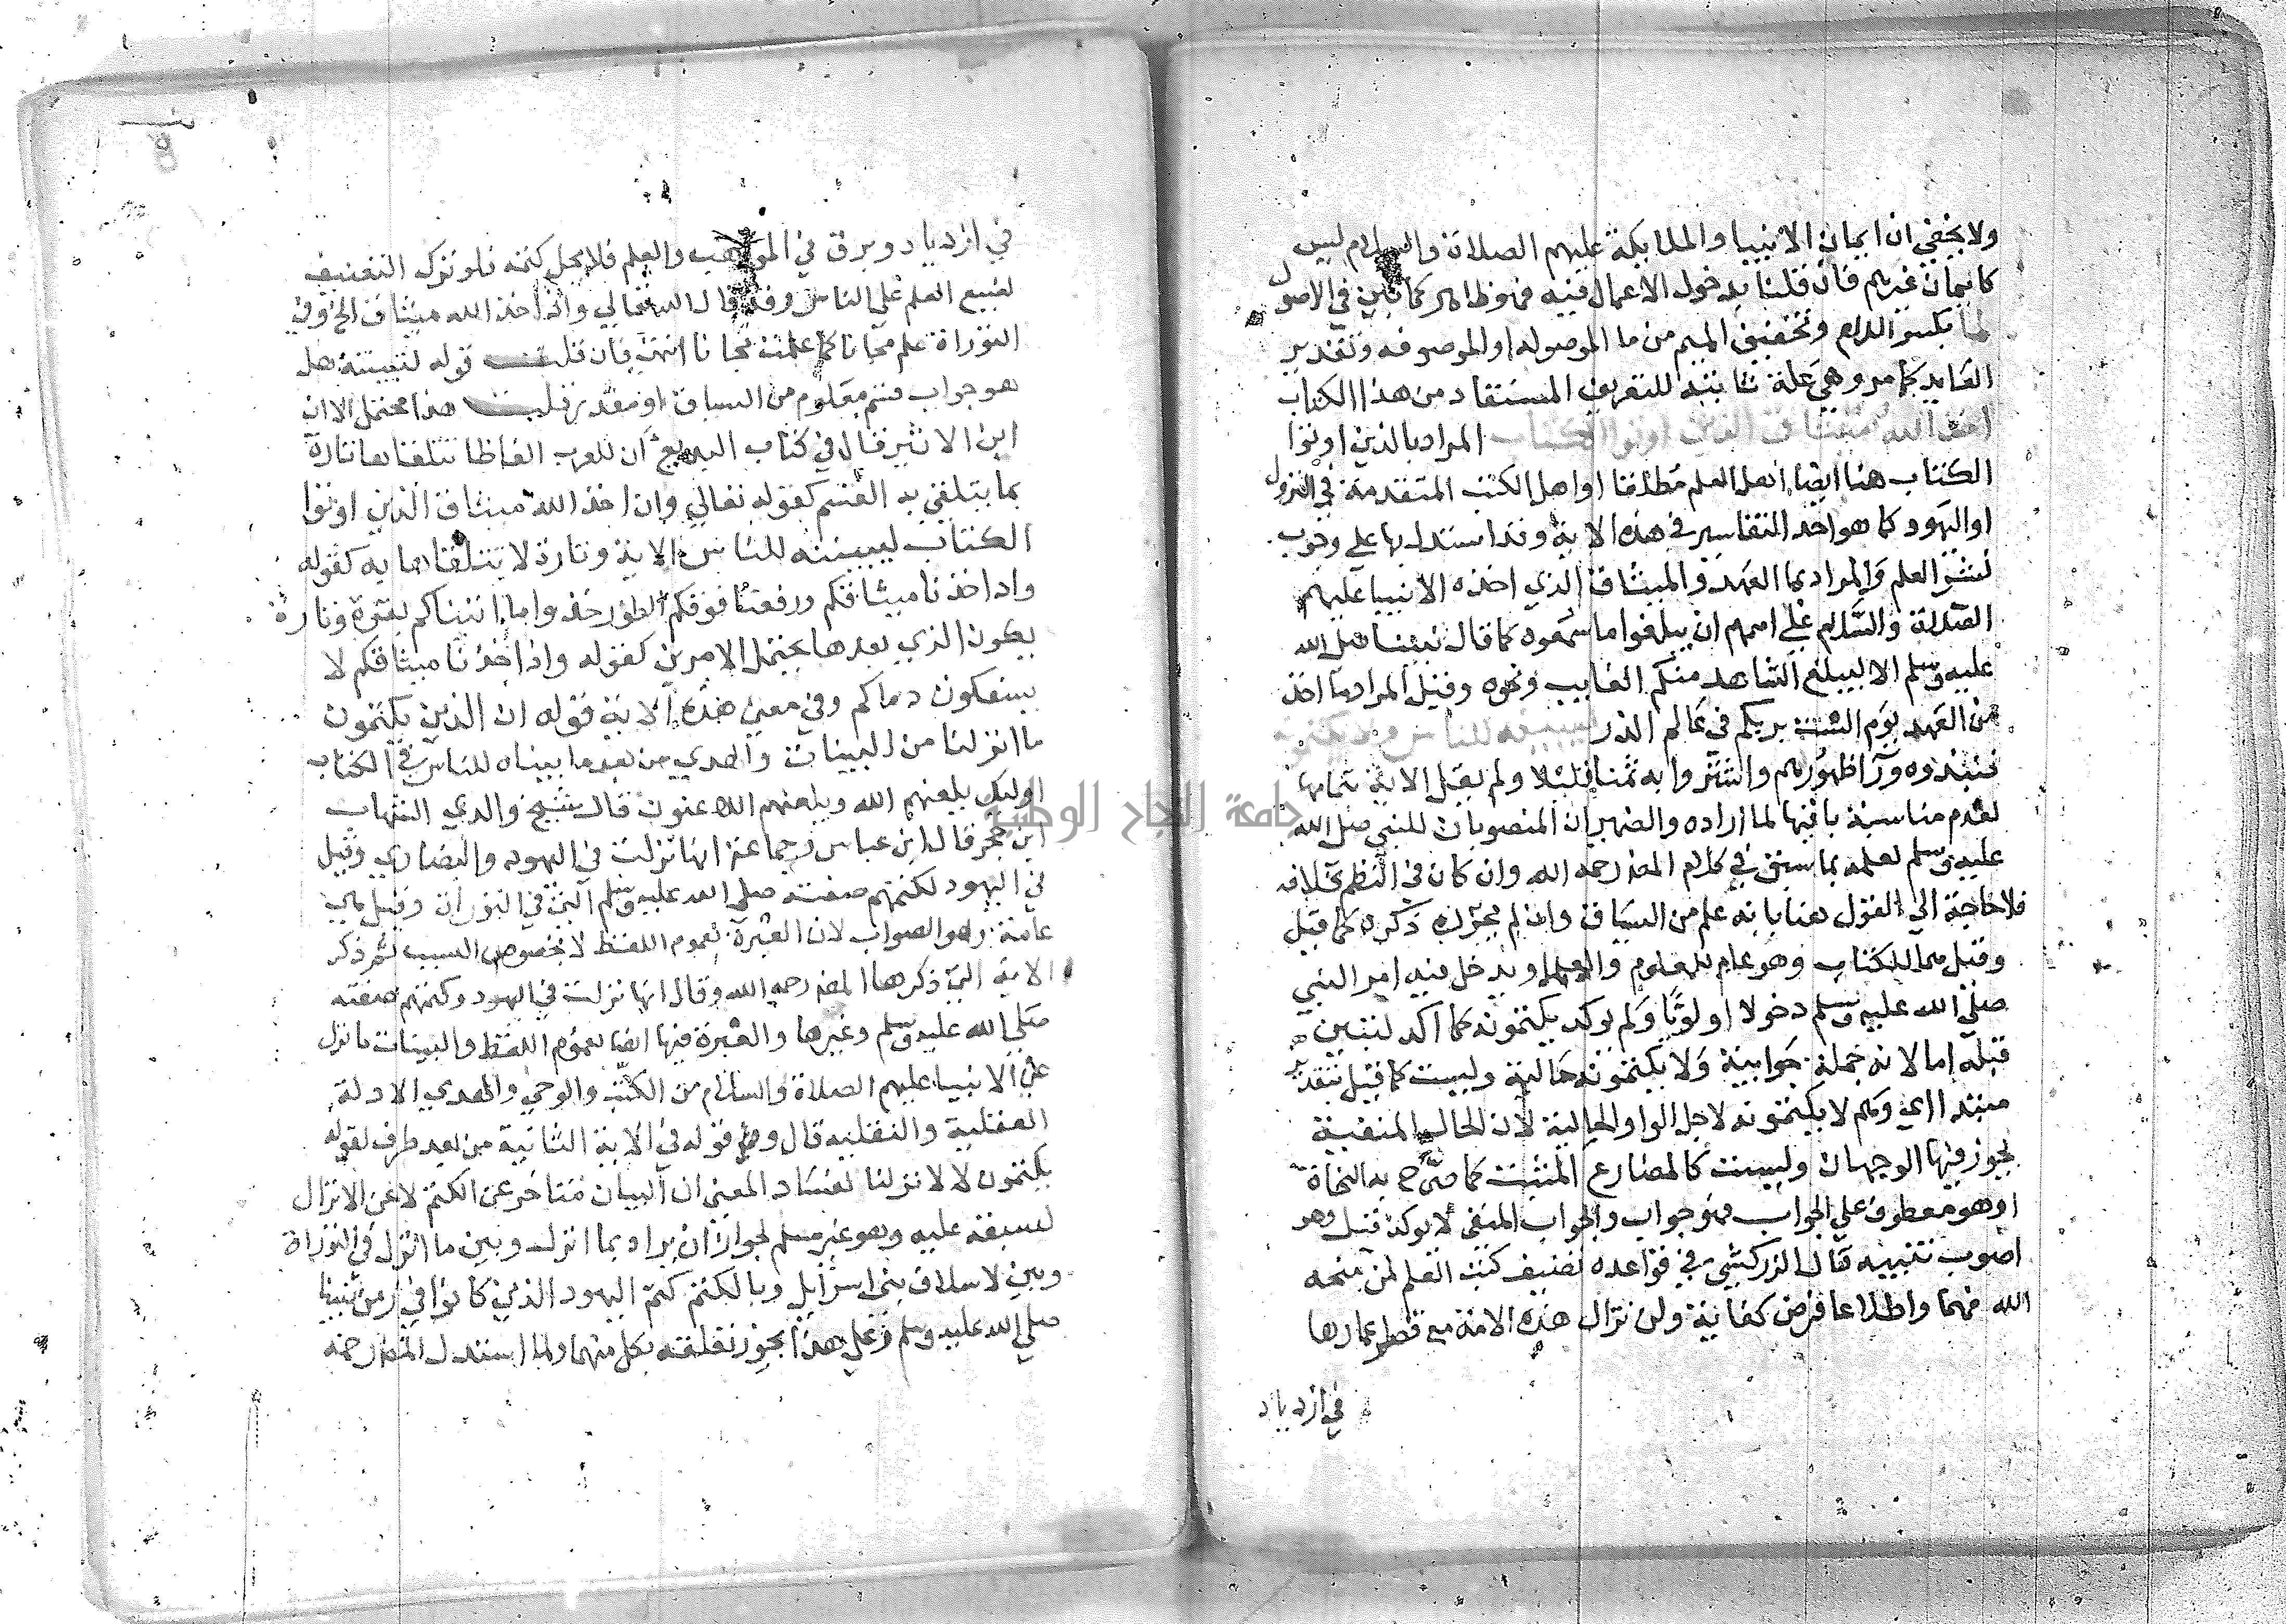 ولا يخفي ان ايمان الانبيا والملايكة عليهم الصلاة والسلام ليس
كايمان غيرهم فان قلنا بدخول الاعمال فيه فهو ظاهر كما بين في الاصول
لما بكسر اللام وتخفيف الميم من ما الموصوله او الموصوفه وتقدير
العايد كما مر وهي علة ثانية للتعريف المستفاد من هذا الكتاب
اخذ الله ميثاق الذين اوتوا الكتاب المراد بالذين اوتوا
الكتاب هنا ايضا اهل العلم مطلقا او اهل الكتب المتقدمة في النزول
او اليهود كما هو احد التفاسير في هذه الاية وقد استدل بها علي وجوب
نشر العلم والمراد بما العهد والميثاق الذي اخذه الانبيا عليهم
الصلاة والسلام علي اممهم ان يبلغوا ما سمعوه كما قال نبينا صلي الله
عليه وسلم الا ليبلغ الشاهد منكم الغايب ونحوه وقيل المراد ما اخذ
من العهد يوم الست بربكم في عالم الذر ليبيننه للناس ولا يكتمونه
فنبذوه ورآ ظهورهم واشتروا به ثمنا قليلا ولم يقل الاية بتمامها
لعدم مناسبة باقيها لما اراده والضميران المنصوبان للنبي صلي الله
عليه وسلم لعلمه بما سبق في كلام المص رحمه الله وان كان في النظم بخلافه
فلا حاجة الي القول هنا بانه علم من السياق وان لم يجر له ذكر كما قيل
وقيل هما للكتاب وهو عام للمعلوم والعلما ويدخل فيه امر النبي
صلي الله عليه وسلم دخولا اوليا ولم يوكد يكتمونه كما اكد لتبين
قبله اما لانه جملة جوابية ولا يكتمونه حالية وليست كما قيل بتقدير
مبتدا اي وهم لا يكتمونه لاجل الواو الحالية لان الحال المنفية
يجوز فيها الوجهان وليست كالمضارع المثبت كما صرح به النحاة
او هو معطوف علي الجواب فهو جواب والجواب المنفي لا يوكد قيل وهو
اصوب تنبيه قال الزركشي في قواعده تصنيف كتب العلم لمن منحه
الله فهما واطلاعا فرض كفاية ولن تزال هذه الامة مع قصر عمارها
في ازدياد
في ازدياد وبرق في المواهب والعلم فلا يحل كتمه فلو ترك التصنيف
لضيع العلم علي الناس وقد قال الله تعالي واذ اخذ الله ميثاق الخ وفي
التوراة علم مجانا كما علمت مجانا انتهي فان قلت قوله لتبيننه هل
هو جواب قسم معلوم من السياق او مقدر قلت هذا محتمل الا ان
ابن الاثير قال في كتاب البديع ان للعرب الفاظا تتلقاها تارة
بما يتلقي به القسم كقوله تعالي واذ اخذ الله ميثاق الذين اوتوا
الكتاب ليبيننه للناس الاية وتارة لا يتلقاها به كقوله
واذ اخذنا ميثاقكم ورفعنا فوقكم الطور خذوا ما اتيناكم بقوة وتارة
يكون الذي بعدها يحتمل الامرين كقوله واذ اخذنا ميثاقكم لا
تسفكون دماكم وفي معني هذه الاية قوله ان الذين يكتمون
ما انزلنا من البينات والهدي من بعد ما بيناه للناس في الكتاب
اوليك يلعنهم الله ويلعنهم اللاعنون قال شيخ والدي الشهاب
ابن حجر قال ابن عباس وجماعة انها نزلت في اليهود والنصاري وقيل
في اليهود لكتمهم صفته صلي الله عليه وسلم التي في التوراة وقيل هي
عامة وهو الصواب لان العبرة بعموم اللفظ لا بخصوص السبب ثم ذكر
الاية التي ذكرها المص رحمه الله وقال انها نزلت في اليهود وكتمهم صفته
صلي الله عليه وسلم وغيرها والعبرة فيها ايضا بعموم اللفظ والبينات ما نزل
علي الانبيا عليهم الصلاة والسلام من الكتب والوحي والهدي الادلة
العقلية والنقليه قال وهو قوله في الاية الثانية من بعد ظرف لقوله
يكتمون لا لانزلنا لفساد المعني ان البيان متاخر عن الكتم لا عن الانزال
لسبقه عليه وهو غير مسلم لجواز ان يراد بما انزل وبين ما انزل في التوراة
وبين لاسلاف بني اسرايل وبالكتم كتم اليهود الذين كانوا في زمن نبينا
صلي الله عليه وسلم وعلي هذا يجوز تعلقه بكل منهما ولما استدل المص رحمه
جامعة النجاح الوطنية